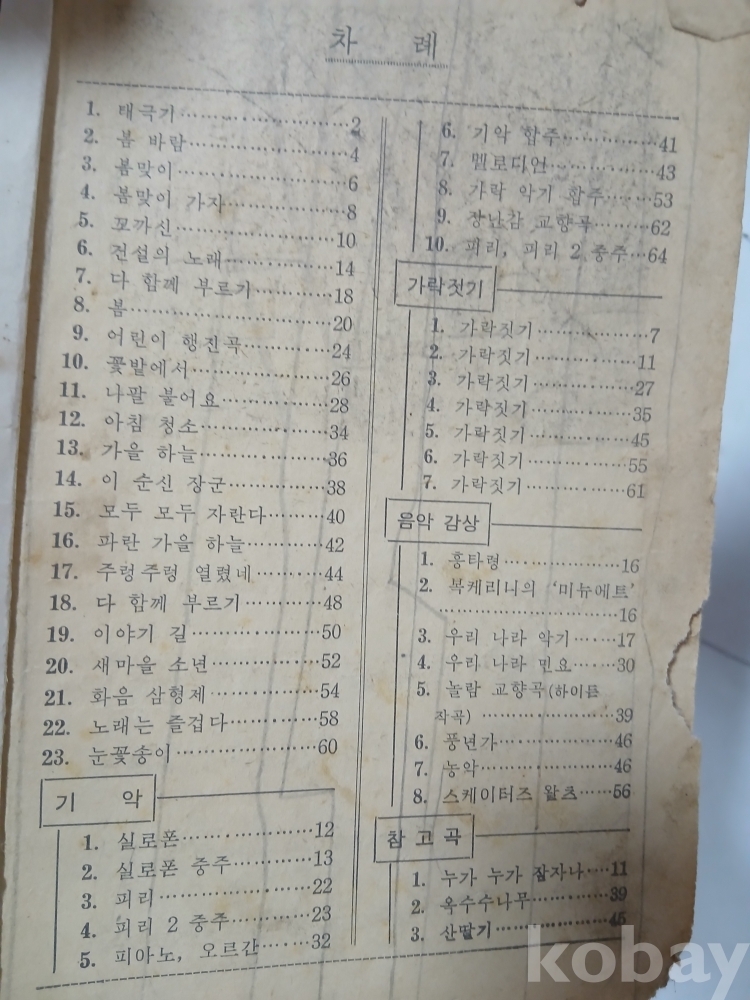 차 례
1. 태극기 2
2. 봄 바람 4
3. 봄맞이 6
4. 봄맞이 가자 8
5. 꼬까신 10
6. 전설의 노래 14
7. 다 함께 부르기 18
8. 봄 20
9. 어린이 행진곡 24
10. 꽃밭에서 26
11. 나팔 불어요 28
12. 아침 청소 34
13. 가을 하늘 36
14. 이 순신 장군 38
15. 모두 모두 자란다 40
16. 파란 가을 하늘 42
17. 주렁주렁 열렸네 44
18. 다 함께 부르기 48
19. 이야기 길 50
20. 새마을 소년 52
21. 화음 삼형제 54
22. 노래는 즐겁다 58
23. 눈꽃송이 60
기 악
1. 실로폰 12
2. 실로폰 중주 13
3. 피리 22
4. 피리 2 중주 23
5. 피아노, 오르간 32
6. 기악 합주 41
7. 멜로디언 43
8. 가락 악기 합주 53
9. 장난감 교향곡 62
10. 피리, 피리 2 중주 64
가락짓기
1. 가락짓기 7
2. 가락짓기 11
3. 가락짓기 27
4. 가락짓기 35
5. 가락짓기 45
6. 가락짓기 55
7. 가락짓기 61
음악 감상
1. 흥타령 16
2. 복케리니의 '미뉴에트'
16
3. 우리 나라 악기 17
4. 우리 나라 민요 30
5. 놀람 교향곡(하이든
작곡) 39
6. 풍년가 46
7. 농악 46
8. 스케이터즈 왈츠 56
참 고 곡
1. 누가 누가 잠자나 11
2. 옥수수나무 39
3. 산딸기 45
kobay